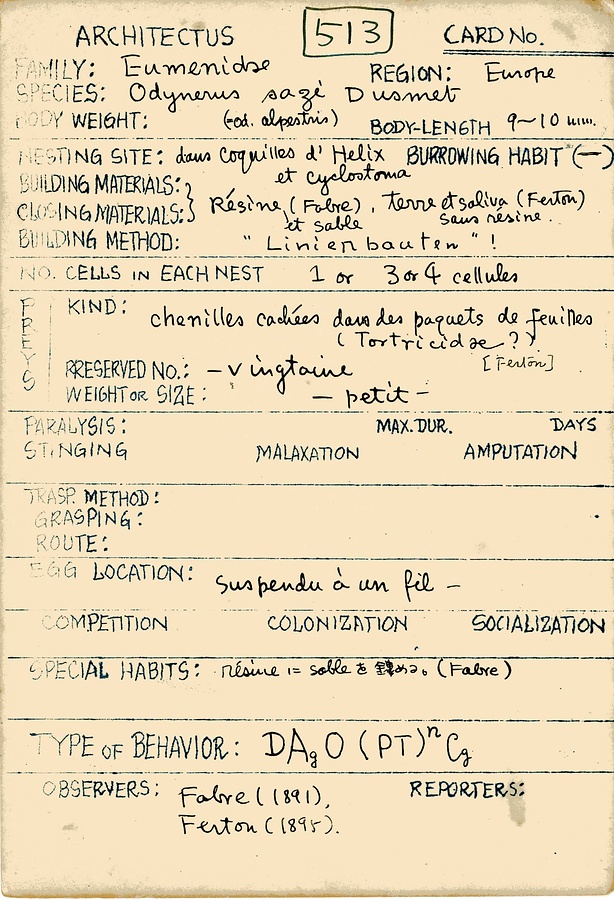 ARCHITECTUS 513 CARD No.
FAMILY: Eumenidae REGION: Europe
SPECIES: Odynerus sazi Dusmet
BODY WEIGHT: (=od. alpestris) BODY-LENGTH 9~10 mm.
NESTING SITE: dans coquilles d'Helix BURROWING HABIT (—)
et cyclostoma
BUILDING MATERIALS:
CLOSING MATERIALS: } Résine (Fabre), terre et saliva (Ferton)
et sable sans résine.
BUILDING METHOD: "Linienbauten"!
NO. CELLS IN EACH NEST 1 or 3 or 4 cellules
PREYS
KIND: chenilles cachées dans des paquets de feuilles
(Tortricidae?)
[Ferton]
PRESERVED No.: — vingtaine
WEIGHT OR SIZE: — petit —
PARALYSIS: MAX. DUR. DAYS
STINGING MALAXATION AMPUTATION
TRASP. METHOD:
GRASPING:
ROUTE:
EGG LOCATION: suspendu à un fil —
COMPETITION COLONIZATION SOCIALIZATION
SPECIAL HABITS: résine に sable を める。(Fabre)
TYPE OF BEHAVIOR: DAgO (PT)ⁿ Cg
OBSERVERS: Fabre (1891), REPORTERS:
Ferton (1895).